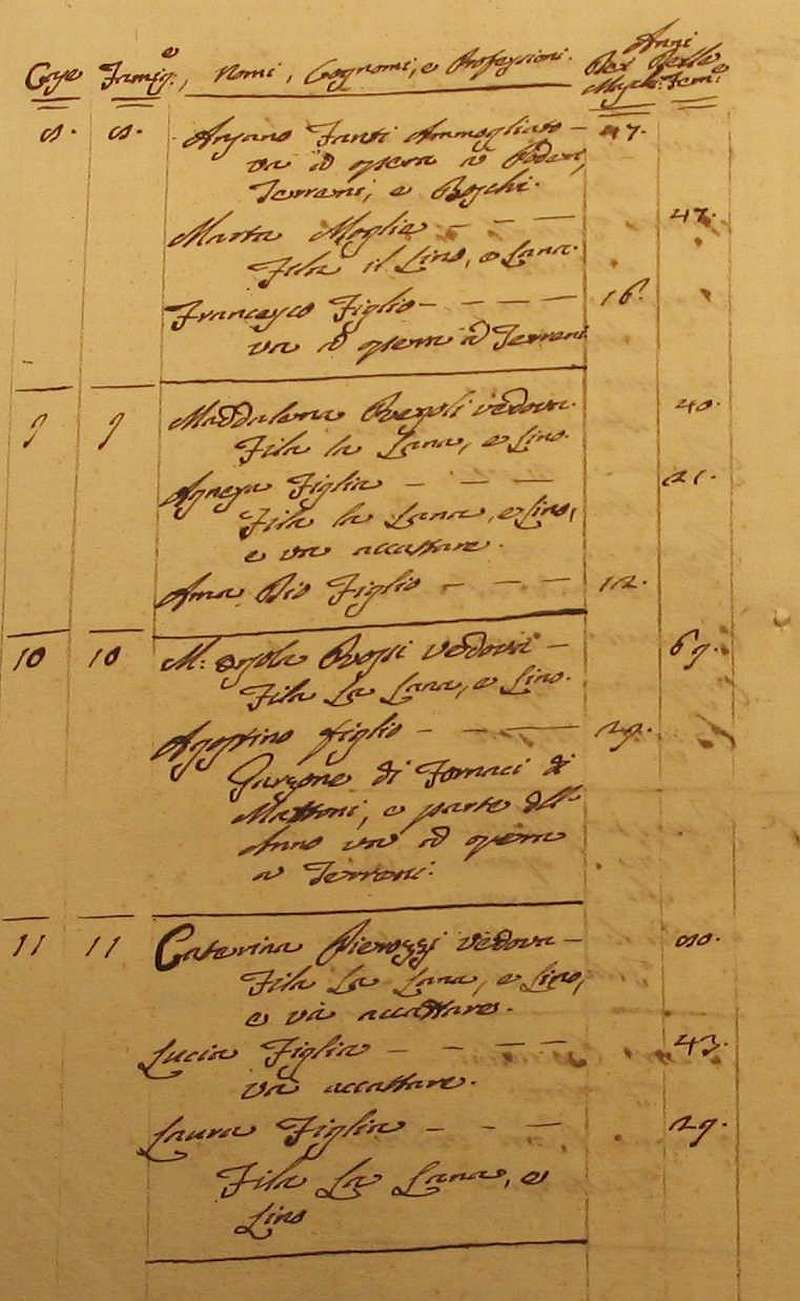 Case Famig:e, Nomi, Cognomi, e Professioni. Anni
Dei Masch: Delle Fem:e
8. 8. Fanti Ammogliato — 47.
va ad opera a Poderi,
Terreni, e Boschi.
Marta Moglie — — — 47.
Fila il Lino, e Lana.
Francesco Figlio — — — — 16.
va ad opera a Terreni
9 9 Maddalena vedova. 40.
Fila la Lana, e Lino.
Agnesa Figlia — — — 21.
Fila la Lana, e Lino,
e va accattare.
Ama Dio Figlio — — — 12.
10 10 M: Rossi vedova — 69.
Fila La Lana, e Lino.
Agostino figlio — — — 29.
Garzone di Fornaci di
Mattoni, e parte dell'
Anno va ad opera
a Terreni.
11 11 Caterina Pierozzi vedova — 80.
Fila La Lana, e Lino,
e và accattare.
Lucia Figlia — — — — 43.
Va accattare.
Laura Figlia — — — 29.
Fila La Lana, e
Lino